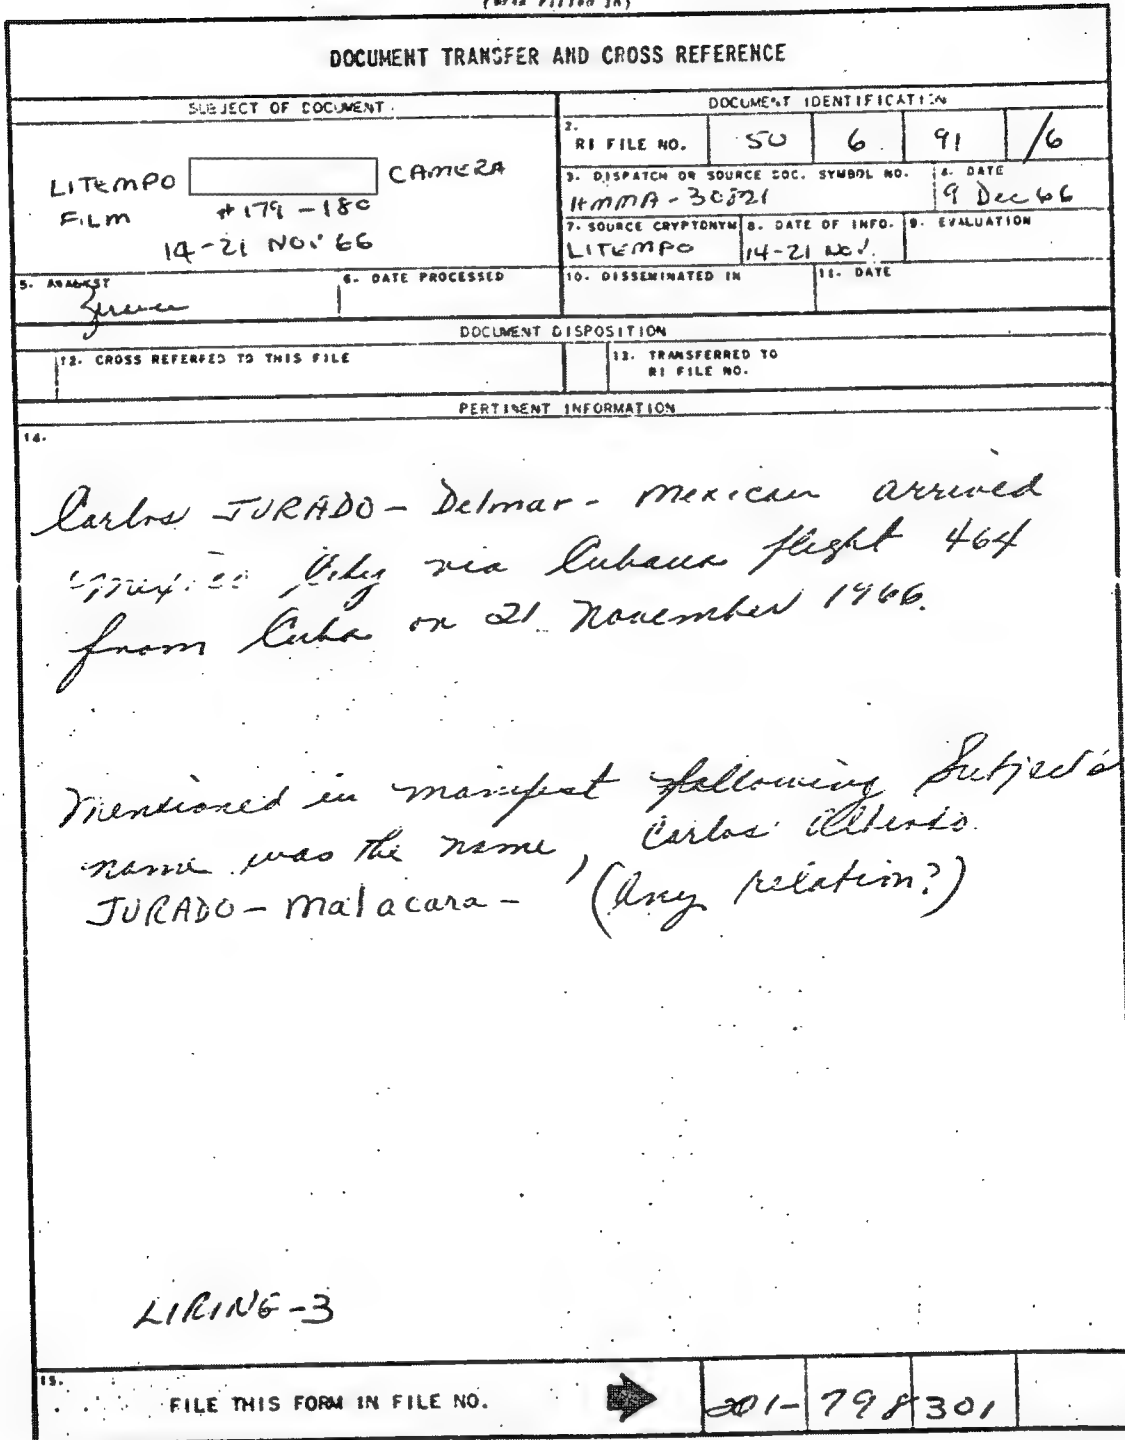 DOCUMENT TRANSFER AND CROSS REFERENCE
SUBJECT OF DOCUMENT
LITEMPO CAMERA
FILM #179-180
14-21 NOV 66
5. ANALYST
6. DATE PROCESSED
DOCUMENT IDENTIFICATION
2. RI FILE NO. 50 6 91 /6
3. DISPATCH OR SOURCE DOC. SYMBOL NO.
HMMA-30821
4. DATE
9 Dec 66
7. SOURCE CRYPTONYM
LITEMPO
8. DATE OF INFO.
14-21 Nov.
9. EVALUATION
10. DISSEMINATED IN
11. DATE
DOCUMENT DISPOSITION
12. CROSS REFERRED TO THIS FILE
13. TRANSFERRED TO
RI FILE NO.
PERTINENT INFORMATION
14.
Carlos JURADO-Delmar- Mexican arrived
Mexico City via Cubana flight 464
from Cuba on 21 November 1966.
Mentioned in manifest following Subject's
name was the name, Carlos Alberto
JURADO-Malacara- (Any relation?)
LIRING-3
15.
FILE THIS FORM IN FILE NO. 201-798301